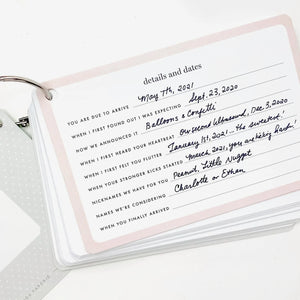 details and dates
YOU ARE DUE TO ARRIVE May 7th, 2021
WHEN I FIRST FOUND OUT I WAS EXPECTING Sept. 23, 2020
HOW WE ANNOUNCED IT Balloons & Confetti
WHEN I FIRST HEARD YOUR HEARTBEAT Our second Ultrasound, Dec 3, 2020
WHEN I FIRST FELT YOU FLUTTER January 1st, 2021... the sweetest!
WHEN YOUR STRONGER KICKS STARTED March 2021, you are kicking hard!
NICKNAMES WE HAVE FOR YOU Peanut, Little Nugget
NAMES WE'RE CONSIDERING Charlotte or Ethan
WHEN YOU FINALLY ARRIVED